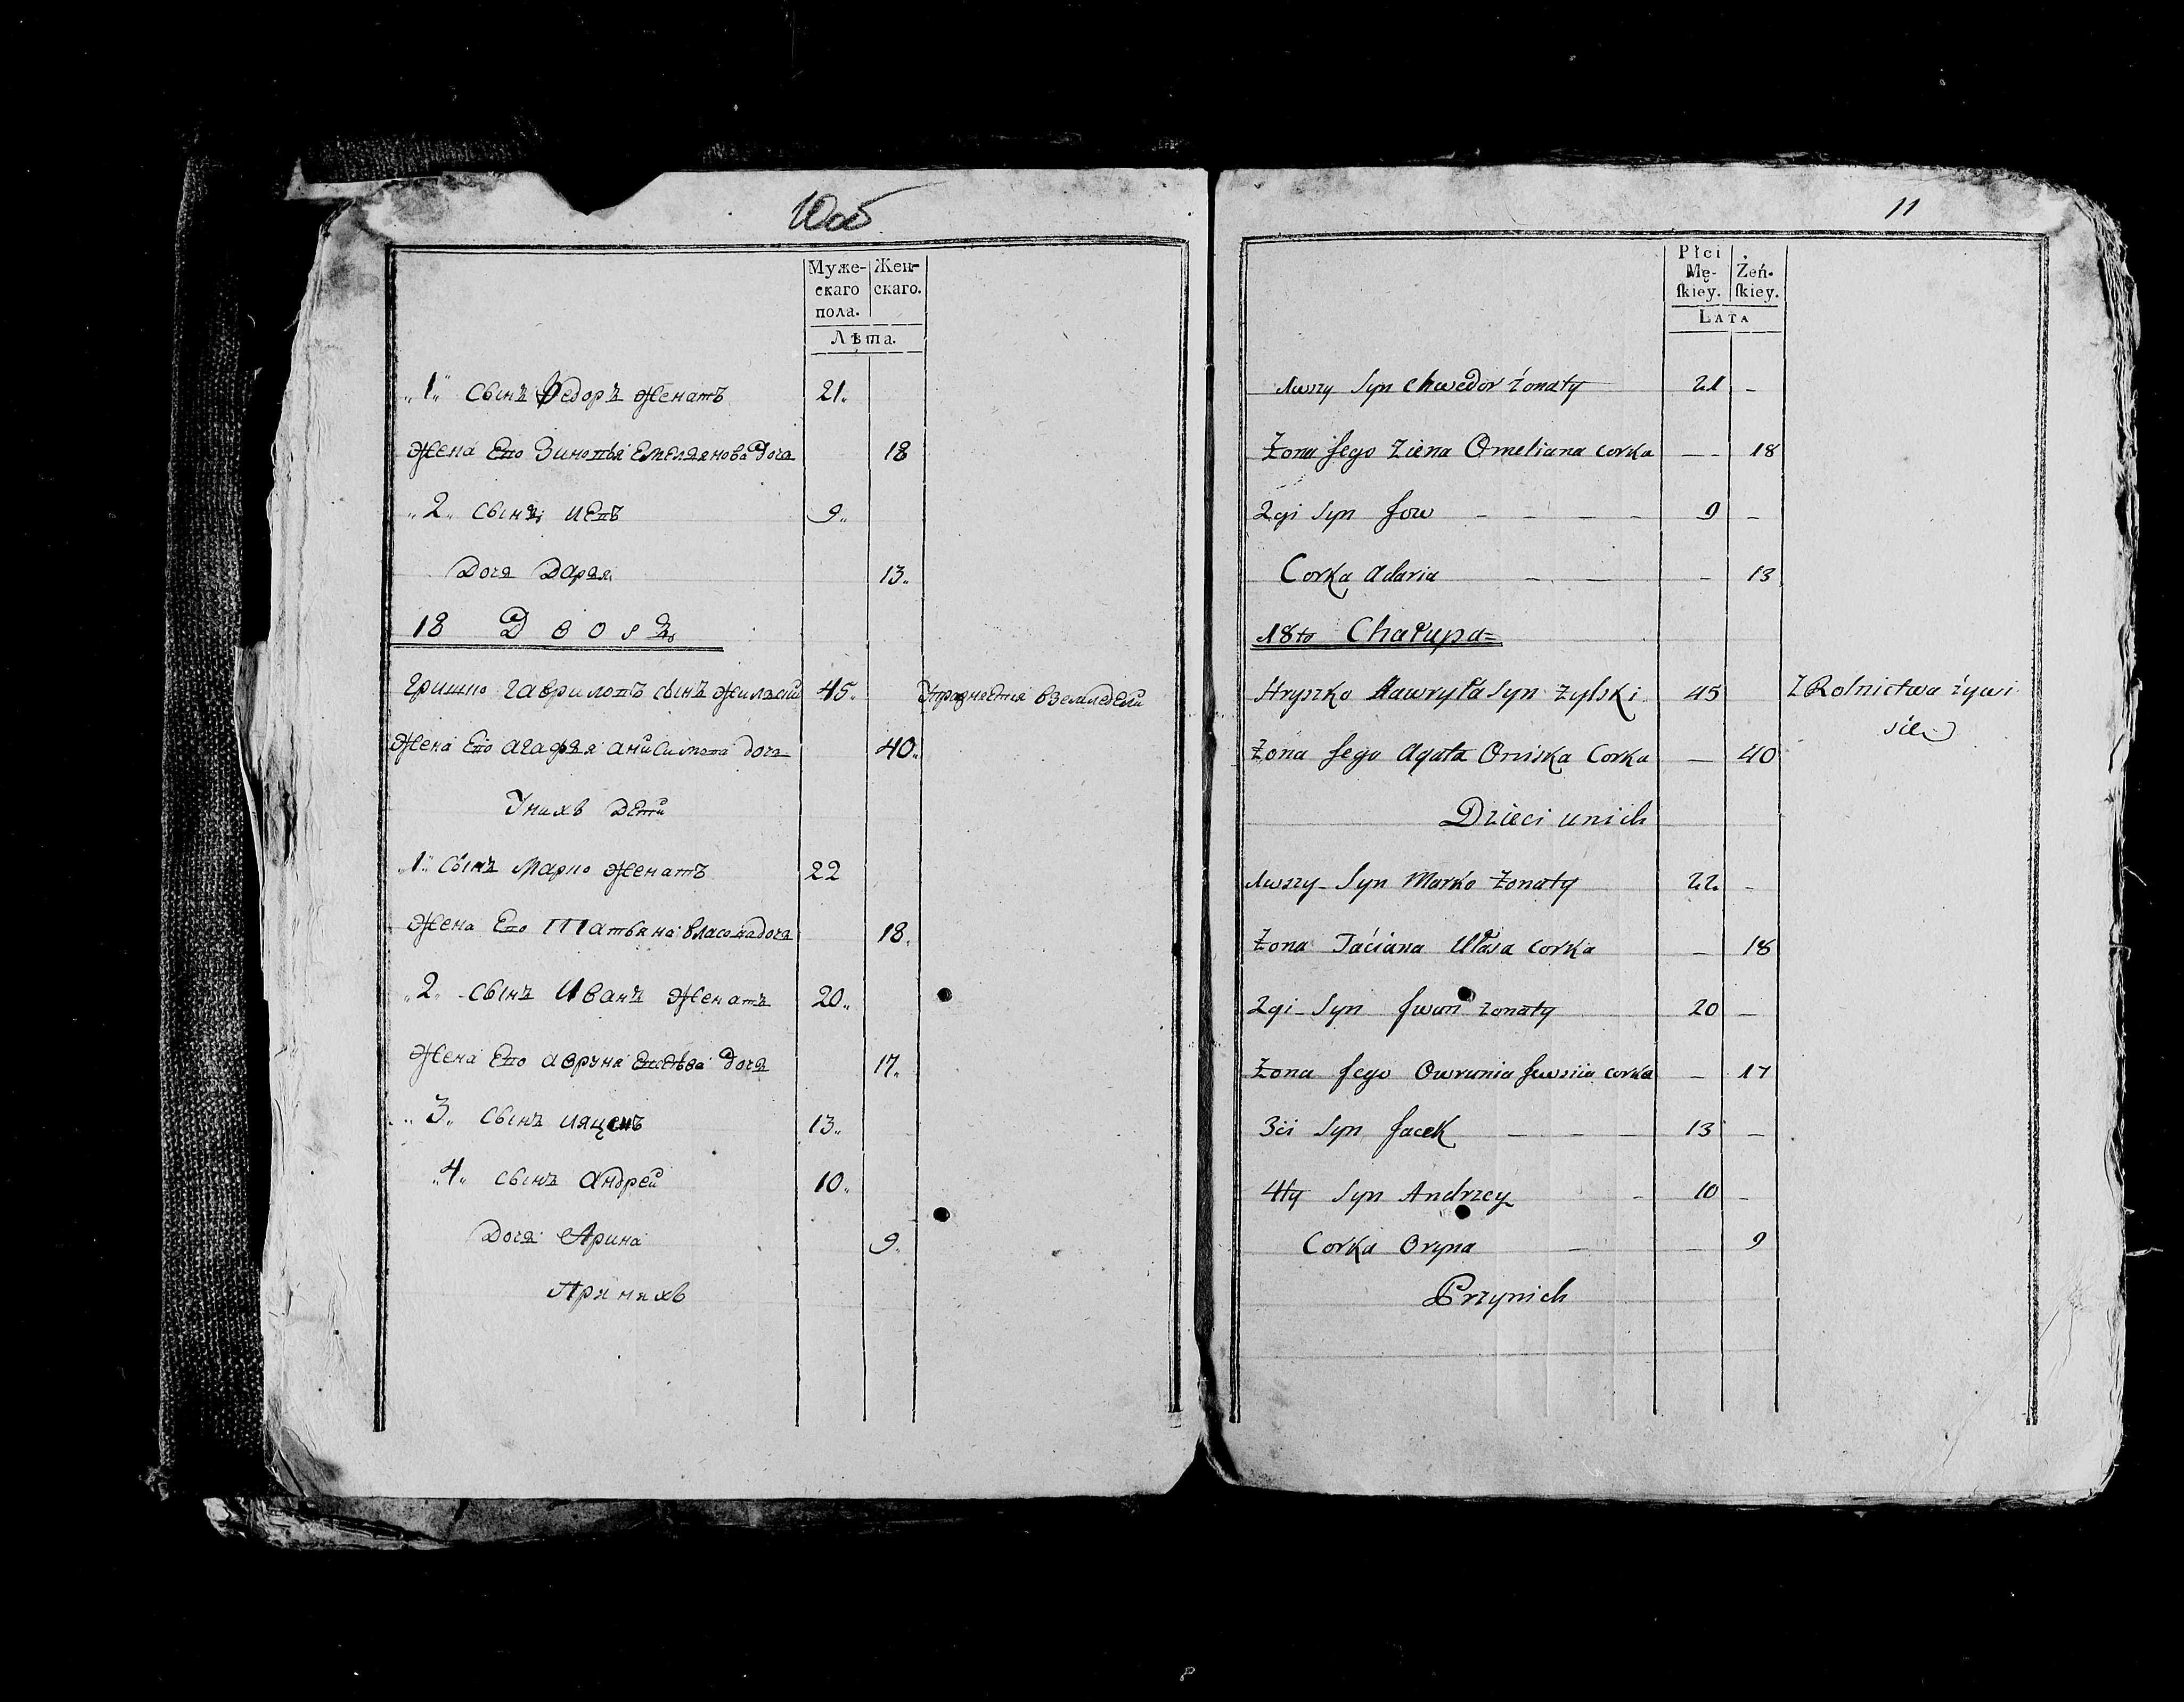 10об
Муже- Жен-
скаго скаго.
пола.
Лѣта.
„1„ сынъ Федоръ женатъ 21.
жена Его Зиновья Емелянова Доча 18
„2„ сынъ иевъ 9.
Доча Даря 13.
18 Дворъ
Гришко Гавриловъ сынъ Жилский 45. Упражняется в земледелии
жена Его агафея анисимова доча 40.
У них Дети
„1„ сынъ Марко женатъ 22
жена Его Татьяна власова доча 18.
„2„ сынъ Иванъ женатъ 20.
Жена Его Авруня доча 17.
„3„ сынъ 13.
„4„ сынъ андрей 10.
Доча Арина 9.
При них
11
Płci
Mę- Żeń-
skiey. skiey.
LATA
1wszy Syn Chwedor żonaty 21 -
Żona Jego Ziena Omeliana corka - - 18
2gi Syn Jow - - - - 9 -
Corka adaria - - - 13
18ta Chałupa=
Hryszko Hawryła Syn Zylski 45 Z Rolnictwa żywi
się
Żona Jego Agata Oniska Corka - 40
Dzieci unich
1wszy Syn Marko Żonaty 22 -
Żona Taciana Ułasa corka - 18
2gi Syn Jwan żonaty 20 -
Żona Jego Owrunia corka - 17
3ci Syn Jacek - - - 13 -
4ty Syn Andrzey - 10 -
Corka Oryna - - 9
Przynich